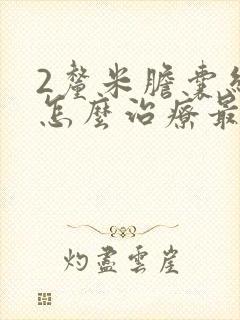 2釐米膽囊
怎麼治療最
灼盡雲崖